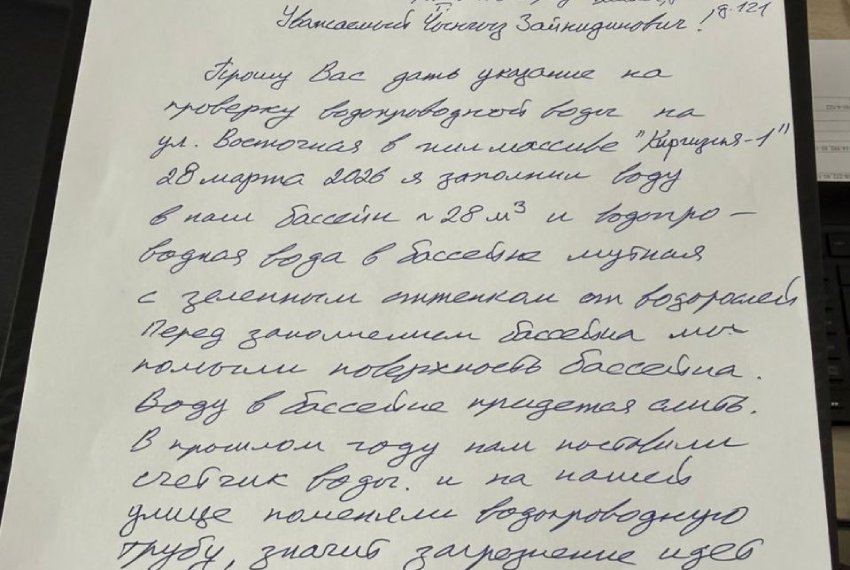 д. 121
Уважаемый Чынгыз Зайнидинович!
Прошу Вас дать указание на
проверку водопроводной воды на
ул. Восточная в жилмассиве "Киргизия-1"
28 марта 2026 я заполнил воду
в наш бассейн ~ 28 м³ и водопро-
водная вода в бассейне мутная
с зеленным оттенком от водорослей
Перед заполнением бассейна мы
помыли поверхность бассейна.
Воду в бассейне придется слить.
В прошлом году нам поставили
счетчик воды. и на нашей
улице поменяли водопроводную
трубу, значит загрезнение идет